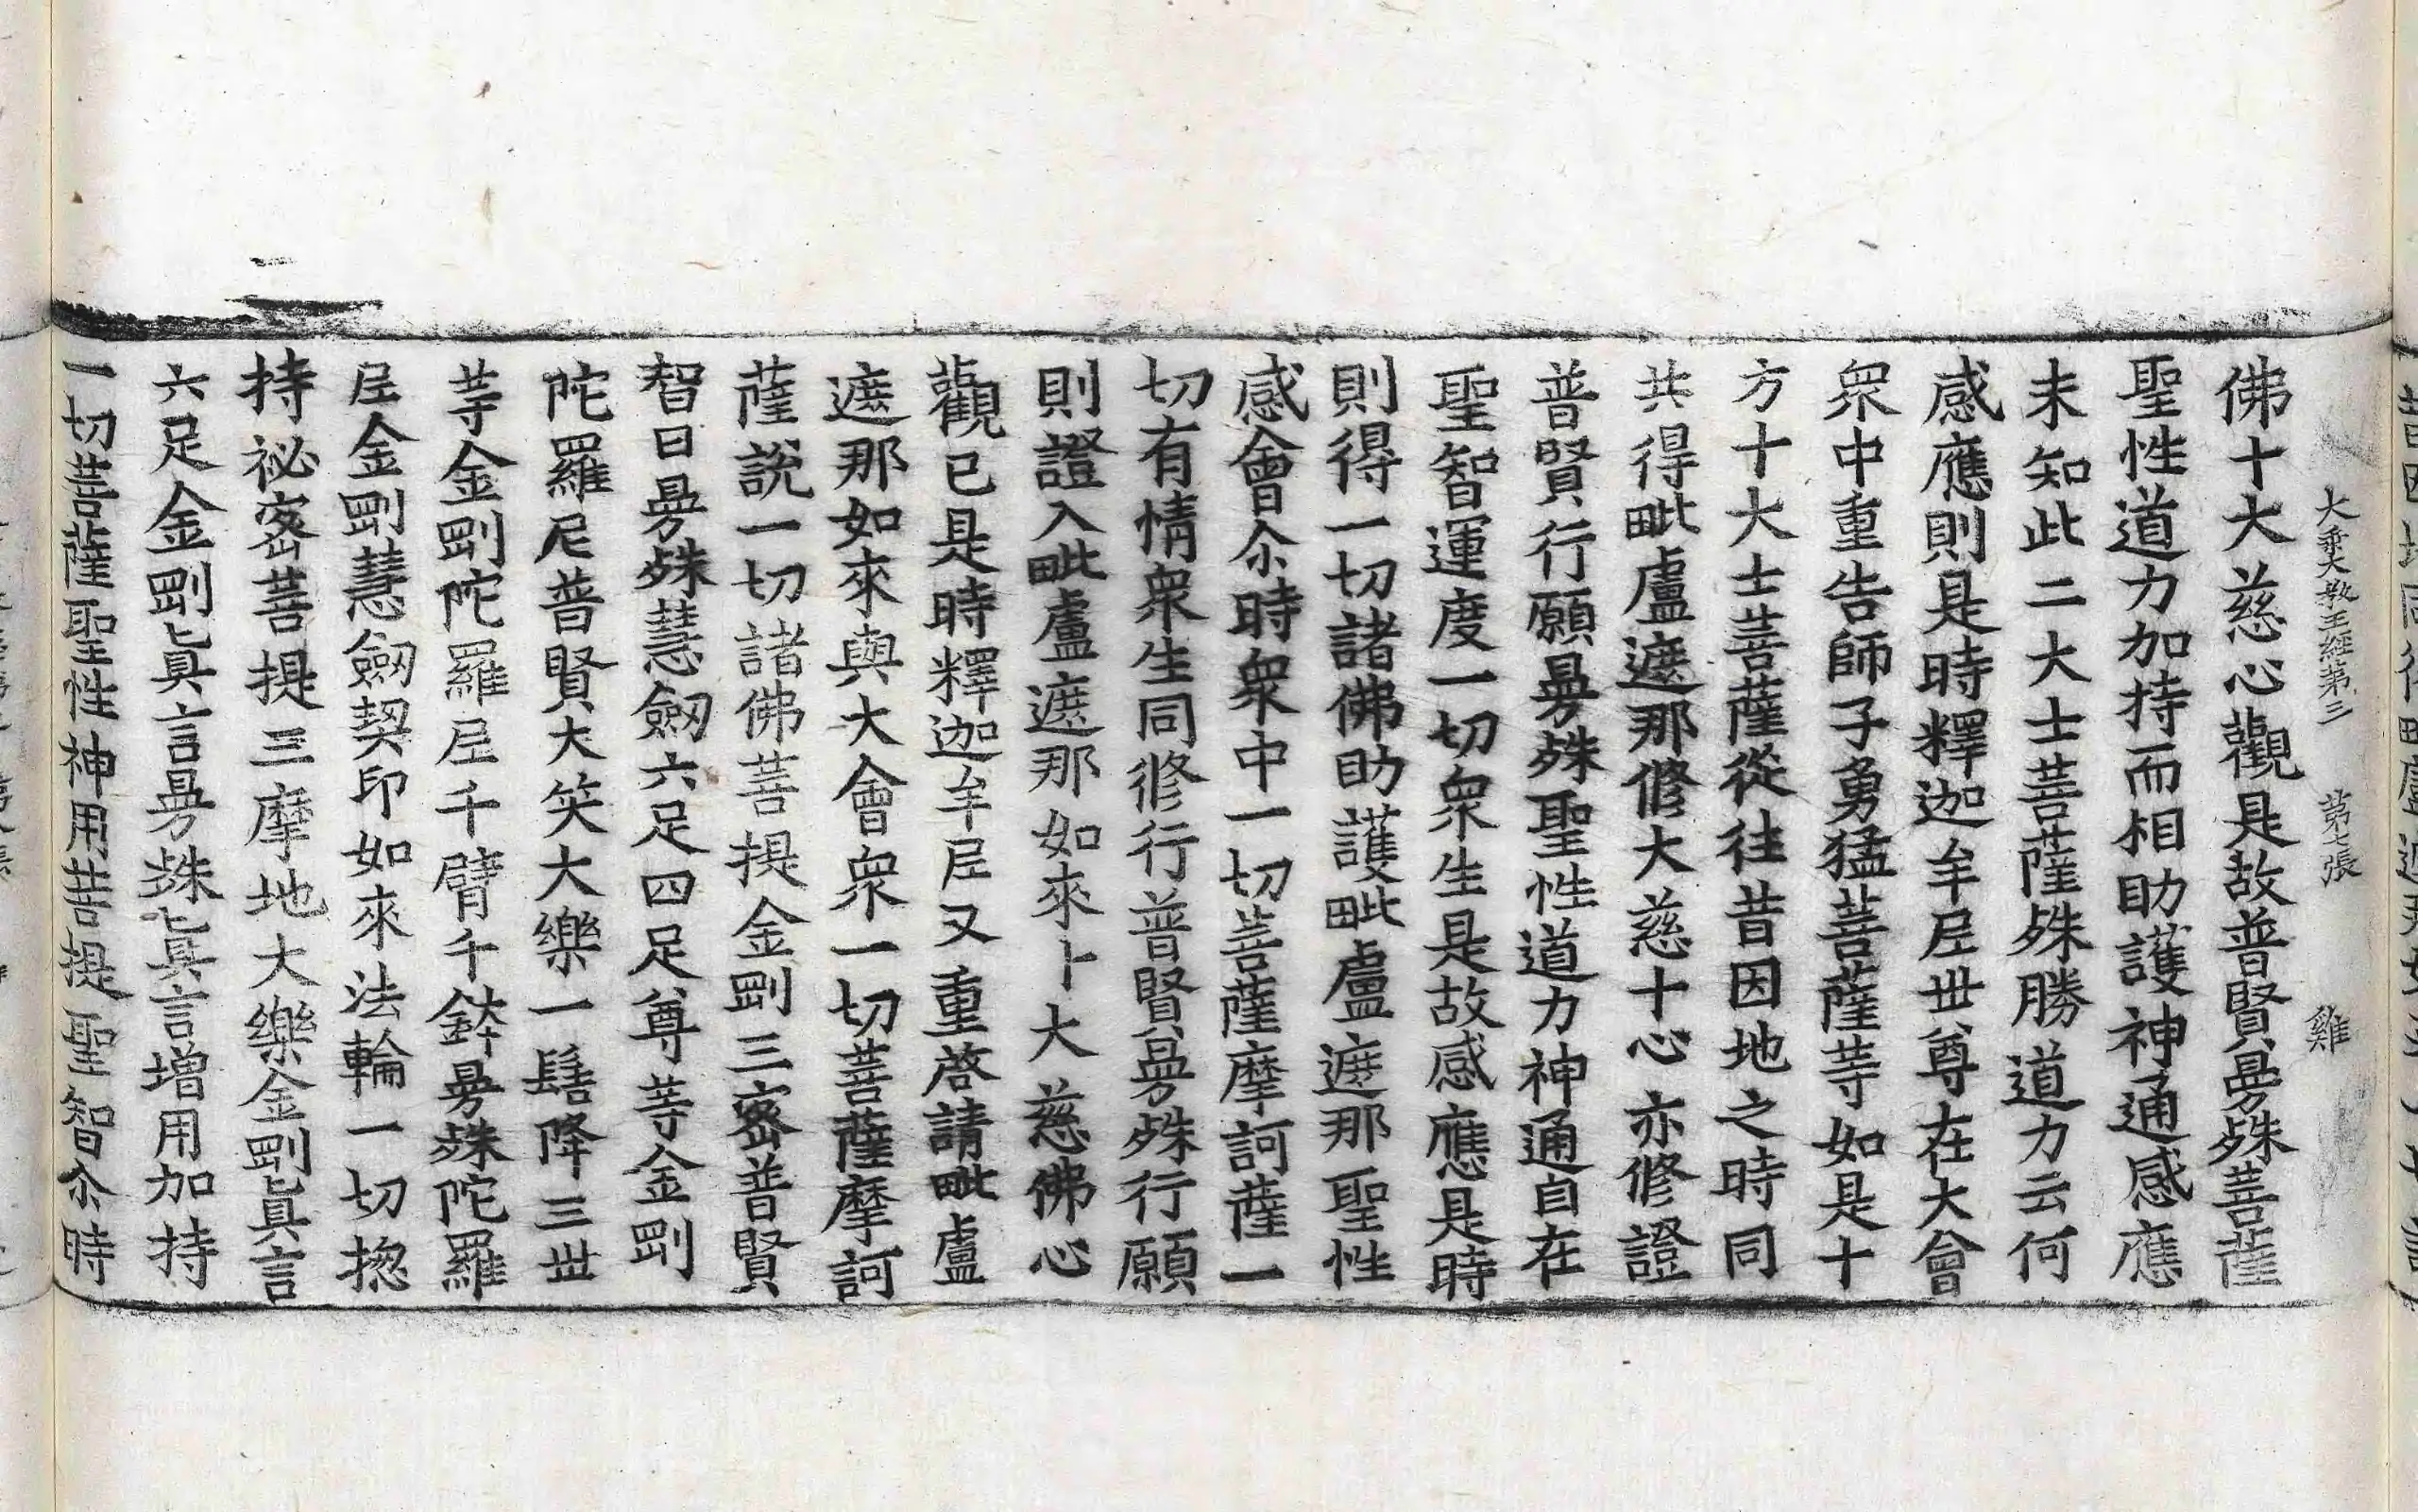 大乘大教王經第三　第七張　雞
佛十大慈心觀是故普賢曼殊菩薩
聖性道力加持而相助護神通感應
未知此二大士菩薩殊勝道力云何
感應則是時釋迦牟㞐世尊在大會
衆中重告師子勇猛菩薩䓁如是十
方十大士菩薩從往昔因地之時同
共得毗盧遮那修大慈十心亦修證
普賢行願曼殊聖性道力神通自在
聖智運度一切衆生是故感應是時
則得一切諸佛助護毗盧遮那聖性
感會尒時衆中一切菩薩摩訶薩一
切有情衆生同修行普賢曼殊行願
則證入毗盧遮那如來十大慈佛心
觀已是時釋迦牟㞐又重啓請毗盧
遮那如來與大會衆一切菩薩摩訶
薩說一切諸佛菩提金剛三密普賢
智曰曼殊慧劒六足四足尊䓁金剛
陀羅尼普賢大笑大樂一髻降三世
䓁金剛陀羅㞐千臂千鉢曼殊陀羅
㞐金剛慧劒契印如來法輪一切揔
持祕密菩提三摩地大樂金剛眞言
六足金剛眞言曼殊眞言增用加持
一切菩薩聖性神用菩提聖智尒時